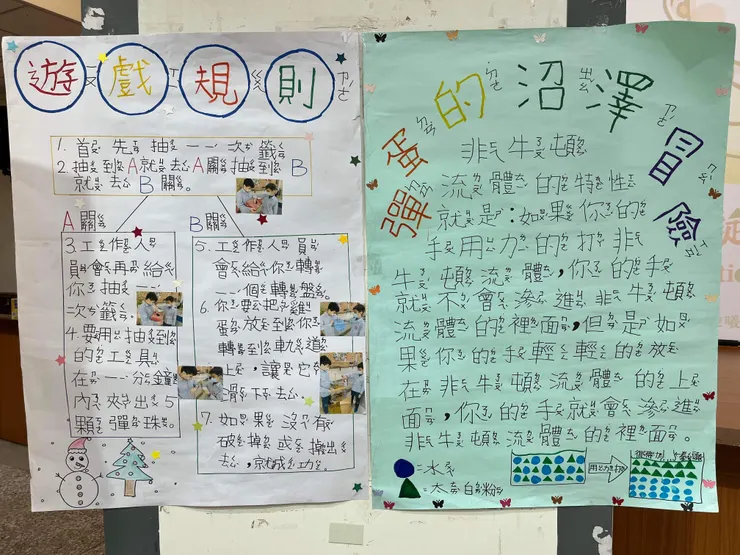 遊戲規則
1. 首先抽一次籤
2. 抽到A就去A關抽到B
就去B關。
A關
3. 工作人
員會再給
你抽一
次籤。
4. 要用抽到
的工具
在一分鐘
內夾出5
顆彈珠。
B關
5. 工作人員
會給你轉
一個轉盤。
6. 你要把雞
蛋放到你
轉到軌道
上,讓它
滑下去。
7. 如果沒有
破掉或掉出
去,就成功。
彈蛋的沼澤冒險
非牛頓
流體的特性
就是:如果你的
手用力的打非
牛頓流體,你的手
就不會滲進非牛頓
流體的裡面,但是如
果你的手輕輕的放
在非牛頓流體的上
面,你的手就會滲進
非牛頓流體的裡面。
=水
=太白粉